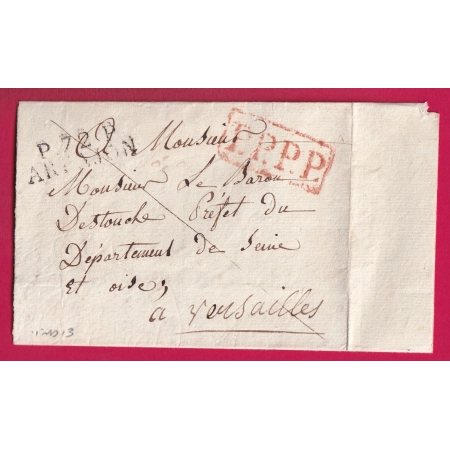 P. 72. P.
ARPAJON
P.P.P.P.
Monsieur
Monsieur Le Baron
Destouche Préfet du
Département de Seine
et oise,
a versailles